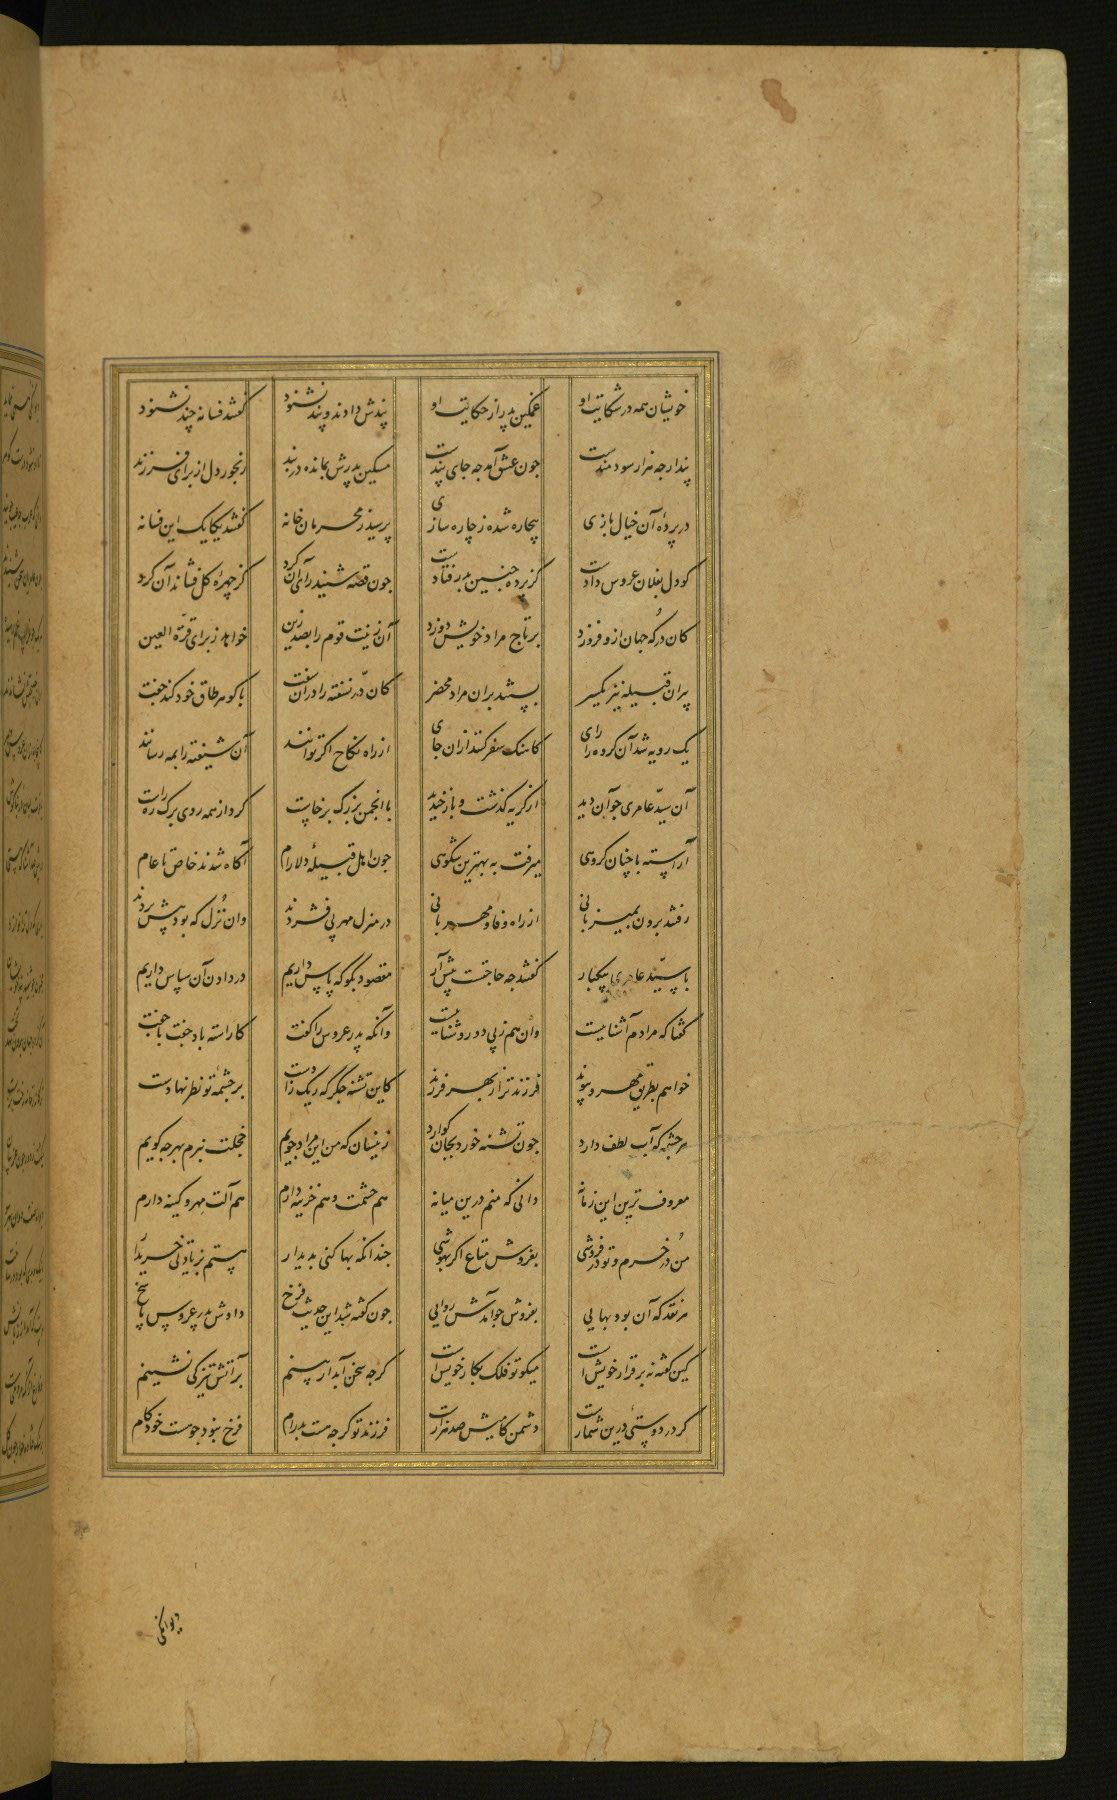 خویشان همه در شکایت او غمگین پدر از حکایت او پندش دادند و پند نشنود گفتند فسانه چند نشنود
پند ارچه هزار سودمندست چون عشق آمد چه جای پندست مسکین پدرش بمانده در بند رنجور دل از برای فرزند
در پردهٔ آن خیال بازی بیچاره شده ز چاره سازی پرسید ز محرمان خانه گفتند یکایک این فسانه
کو دل بفلان عروس دادست کز پرده چنین بدر فتادست چون قصه شنید رای آن کرد کز چهرهٔ گل فشاند آن گرد
کان در که جهان ازو فروزد بر تاج مراد خویش دوزد آن زینت قوم را بصد زین خواهد ز برای قرة العین
پیران قبیله نیز یکسر بستند بران مراد محضر کان در نسفته را دران سفت با گوهر طاق خود کند جفت
یک رویه شد آن گروه را رای کاهنگ سفر کنند ازان جای از راه نکاح اگر توانند آن شیفته را بمه رسانند
آن سید عامری چو آن دید از گریه گذشت و باز خندید با انجمن بزرگ برخاست کرد از همه روی برگ ره راست
آراسته با چنان گروهی میرفت به بهترین شکوهی چون اهل قبیلهٔ دلارام آگاه شدند خاص تا عام
رفتند برون بمیزبانی از راه وفا و مهربانی در منزل مهر پی فشردند وان نزل که بود پیش بردند
با سید عامری بیکبار گفتند چه حاجتست پیش آر مقصود بگو که پاس داریم در دادن آن سپاس داریم
گفتا که مرادم آشناییست وان هم ز پی دو روشناییست وآنگه پدر عروس را گفت کاراسته باد جفت با جفت
خواهم بطریق مهر و پیوند فرزند ترا ز بهر فرزند کاین تشنه جگر که ریگ زادست بر چشمهٔ تو نظر نهادست
هر چشمه که آب لطف دارد چون تشنه خورد بجان گوارد زینسان که من این مراد جویم خجلت نبرم بهرچه گویم
معروف ترین این زمانه دانی که منم درین میانه هم حشمت و هم خزینه دارم هم آلت مهر و کینه دارم
من در خرم و تو در فروشی بفروش متاع اگر بهوشی چندانکه بها کنی پدیدار هستم بزیادتی خریدار
هر نقد که آن بود بهایی بفروش چو آمدش روایی چون گفته شد این حدیث فرخ دادش پدر عروس پاسخ
کین گفته نه برقرار خویش است میگو تو فلک بکار خویش است گرچه سخن آبدار بینم بر آتش تیز کی نشینم
گر دوستیی درین شمارست دشمن کامیش صد هزارست فرزند تو گرچه هست پدرام فرخ نبود چو هست خودکام
دیوانگی